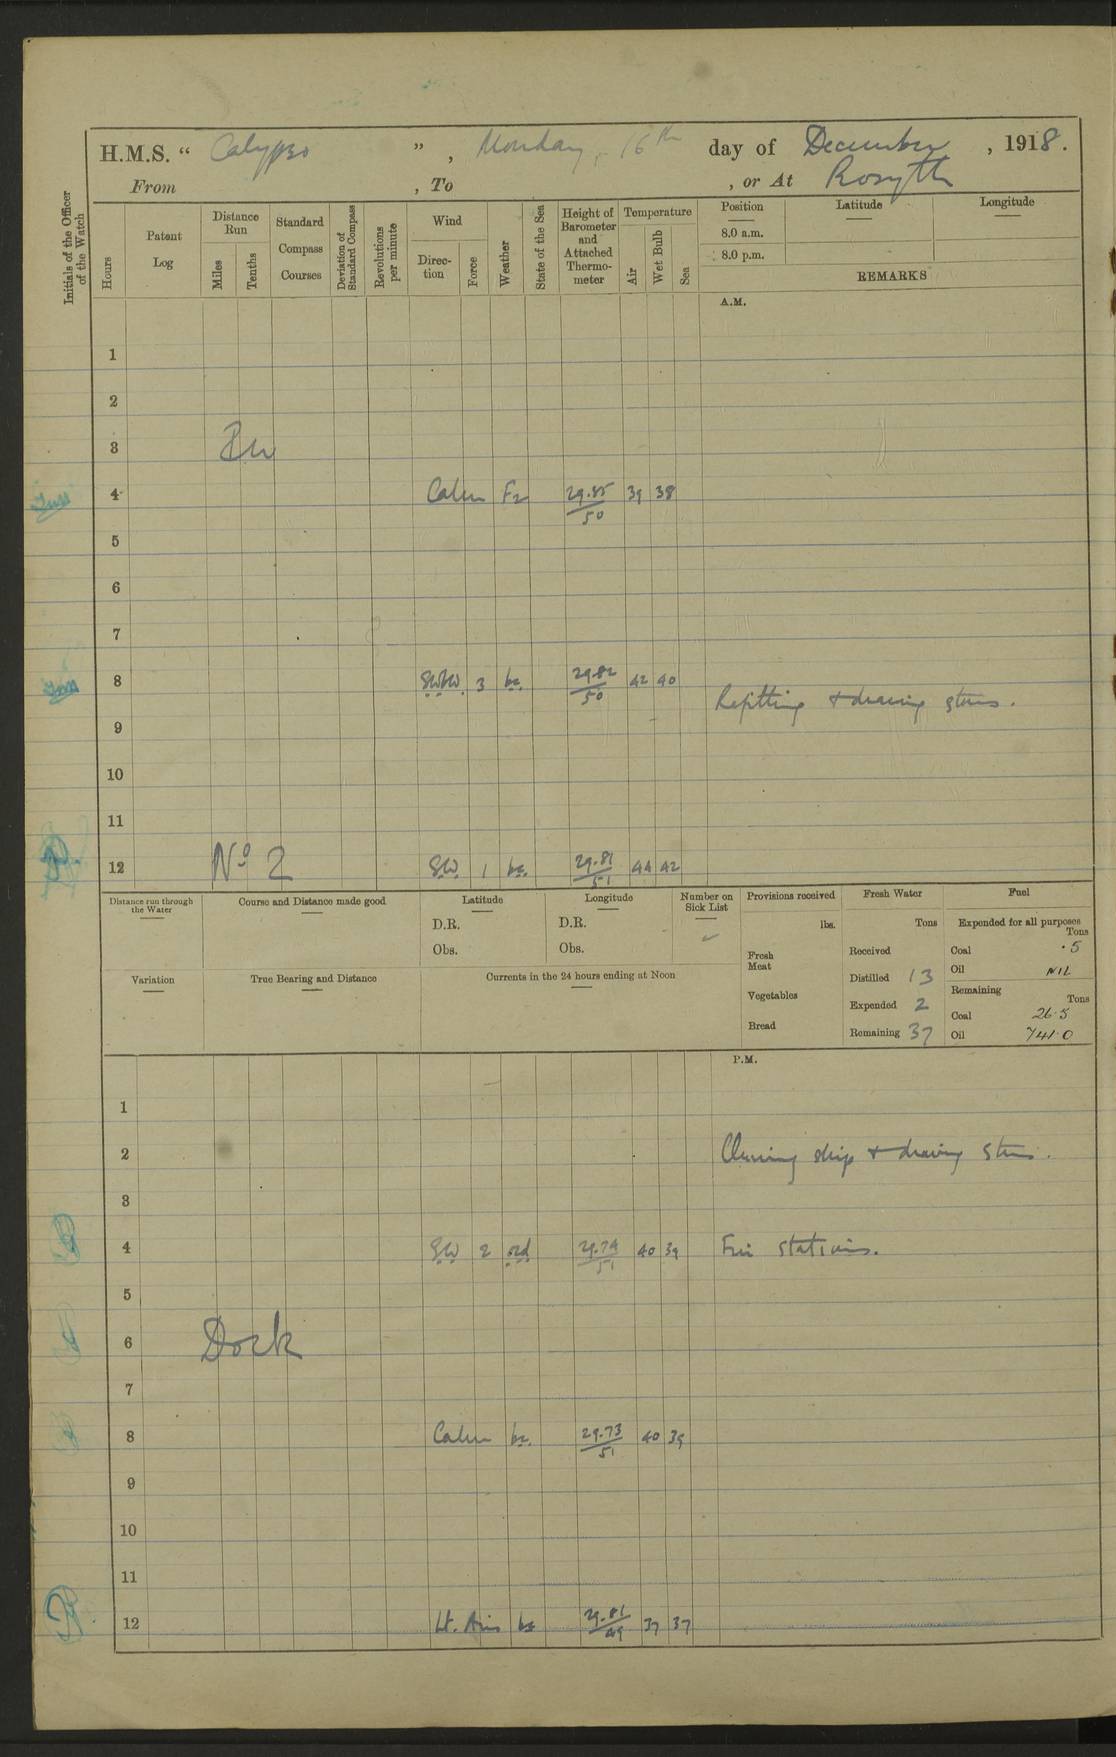 H.M.S. “ Calypso ” , Monday, 16th day of December , 1918.
From , To , or At Rosyth
Initials of the Officer of the Watch
Hours
Patent Log
Distance Run
Miles
Tenths
Standard Compass Courses
Deviation of Standard Compass
Revolutions per minute
Wind
Direction
Force
Weather
State of the Sea
Height of Barometer and Attached Thermometer
Temperature
Air
Wet Bulb
Sea
Position
8.0 a.m.
8.0 p.m.
Latitude
Longitude
REMARKS
A.M.
1
2
3
4 Calm 29.85/50 39 38
5
6
7
8 SWbW. 3 bc. 29.82/50 42 40
Refitting & drawing stores.
9
10
11
12 No 2 SW. 1 bc. 29.81/51 44 42
Distance run through the Water
Course and Distance made good
Latitude
D.R.
Obs.
Longitude
D.R.
Obs.
Number on Sick List
Provisions received
lbs.
Fresh Meat
Vegetables
Bread
Fresh Water
Tons
Received
Distilled 13
Expended 2
Remaining 37
Fuel
Expended for all purposes
Tons
Coal .5
Oil NIL
Remaining
Tons
Coal 26.5
Oil 741.0
Variation
True Bearing and Distance
Currents in the 24 hours ending at Noon
P.M.
1
2 Cleaning ship & drawing stores.
3
4 SW 2 29.74/51 40 39 Fire stations.
5
6 Dock
7
8 Calm bc. 29.73/51 40 39
9
10
11
12 Lt. Airs bc 29.81/49 37 37